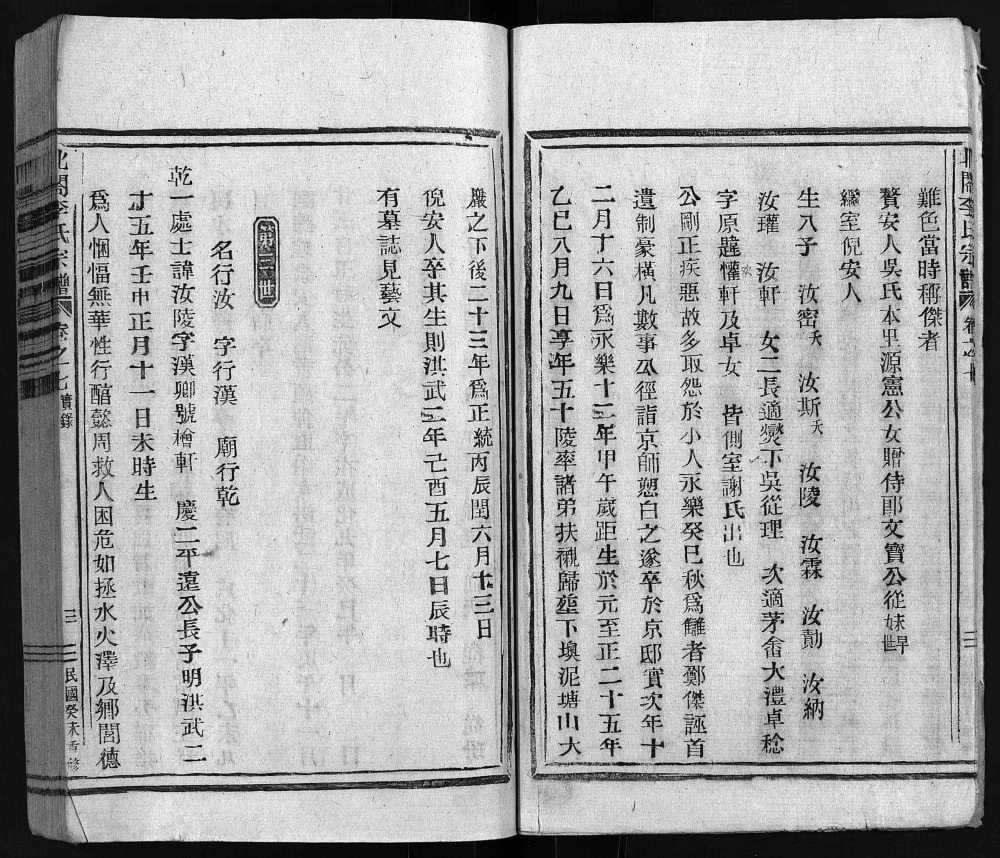 難色當時稱傑者
贅安人吳氏本里源憲公女贈侍郎文寶公從妹
繼室倪安人
生八子 汝密夭 汝斯夭 汝陵 汝霖 汝勛 汝納
汝瓘 汝軒 女二長適爕下吳從理 次適茅畬大澧卓稔
字原韙 懽軒及卓女 皆側室謝氏出也
公剛正疾惡故多取怨於小人永樂癸巳秋爲讎者鄭傑誣首
遺制豪橫凡數事公徑詣京師愬白之遂卒於京邸實次年十
二月十六日爲永樂十二年甲午歲距生於元至正二十五年
乙巳八月九日享年五十陵率諸弟扶櫬歸塟下墺泥塘山大
巖之下後二十三年爲正統丙辰閏六月十三日
倪安人卒其生則洪武二年己酉五月七日辰時也
有墓誌見藝文
第三世
名行汝 字行漢 廟行乾
乾一處士諱汝陵字漢卿號檜軒 慶二平遠公長子明洪武二
十五年壬申正月十一日未時生
爲人悃愊無華性行醕懿周救人困危如拯水火澤及鄉閭德
北閣李氏宗譜 卷之七 實錄 三 民國癸未重修